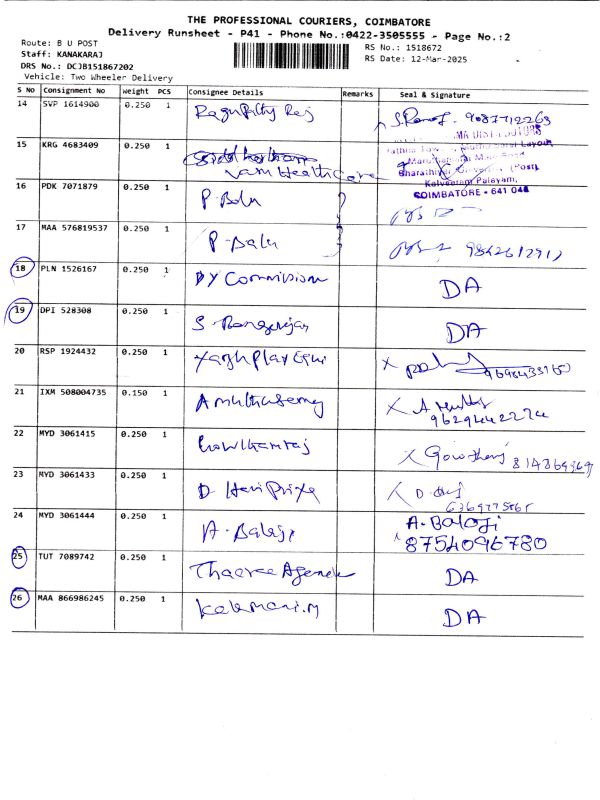 THE PROFESSIONAL COURIERS, COIMBATORE
Delivery Runsheet - P41 - Phone No.:0422-3505555 - Page No.:2
Route: B U POST
RS No.: 1518672
Staff: KANAKARAJ
RS Date: 12-Mar-2025
DRS No.: DCJB151867202
Vehicle: Two Wheeler Delivery
S No Consignment No Weight PCS Consignee Details Remarks Seal & Signature
14 SVP 1614900 0.250 1 Ragupathy Raj 9087712263
15 KRG 4683409 0.250 1 Vam Healthcare
Bharathiyar University (Post),
Kalveeram Palayam,
COIMBATORE - 641 046
16 PDK 7071879 0.250 1 P. Balu
17 MAA 576819537 0.250 1 P. Balu
18 PLN 1526167 0.250 1 DY Commission DA
19 DPI 528308 0.250 1 S. DA
20 RSP 1924432 0.250 1 X
21 IXM 508004735 0.150 1 X A
9629442274
22 MYD 3061415 0.250 1 X Gowtham
23 MYD 3061433 0.250 1 D. Hari Priya X D.
24 MYD 3061444 0.250 1 A. Balaji A. Balaji
8754096780
25 TUT 7089742 0.250 1 DA
26 MAA 866986245 0.250 1 Kalamani.M DA